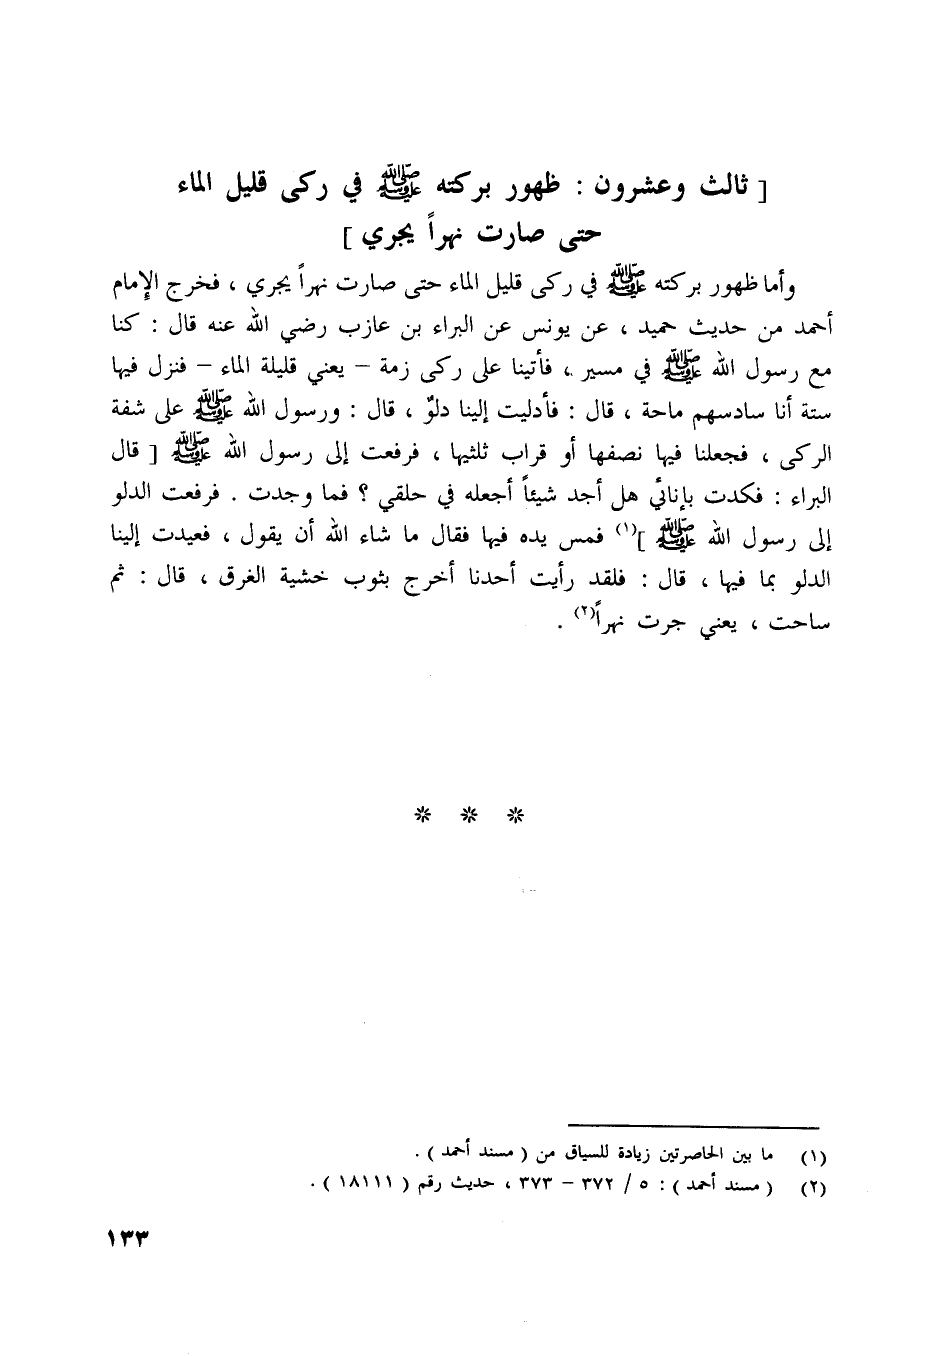 [ ثالث وعشرون : ظهور بركته ﷺ في ركى قليل الماء
حتى صارت نهراً يجري ]
وأما ظهور بركته ﷺ في ركى قليل الماء حتى صارت نهراً يجري ، فخرج الإمام
أحمد من حديث حميد ، عن يونس عن البراء بن عازب رضي الله عنه قال : كنا
مع رسول الله ﷺ في مسير ، فأتينا على ركى زمة – يعني قليلة الماء – فنزل فيها
ستة أنا سادسهم ماحة ، قال : فأدليت إلينا دلوٌ ، قال : ورسول الله ﷺ على شفة
الركى ، فجعلنا فيها نصفها أو قراب ثلثيها ، فرفعت إلى رسول الله ﷺ [ قال
البراء : فكدت بإنائي هل أجد شيئاً أجعله في حلقي ؟ فما وجدت . فرفعت الدلو
إلى رسول الله ﷺ ](١) فمس يده فيها فقال ما شاء الله أن يقول ، فعيدت إلينا
الدلو بما فيها ، قال : فلقد رأيت أحدنا أخرج بثوب خشية الغرق ، قال : ثم
ساحت ، يعني جرت نهراً(٢) .
* * *
(١) ما بين الحاصرتين زيادة للسياق من ( مسند أحمد ) .
(٢) ( مسند أحمد ) : ٥ / ٣٧٢ – ٣٧٣ ، حديث رقم ( ١٨١١١ ) .
١٣٣